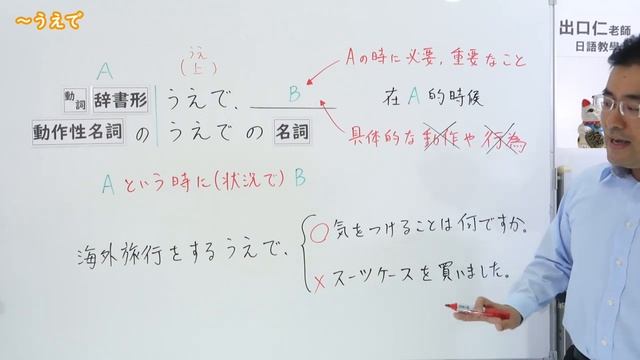 ～うえで
出口仁老師
日語教學
A
うえ
(上)
Aの時に必要、重要なこと
動詞 辞書形 うえで、B
在 A 的時候
動作性名詞 の うえでの 名詞
具体的な動作や行為
A という時に(状況で) B
海外旅行をするうえで、
○ 気をつけることは何ですか。
× スーツケースを買いました。